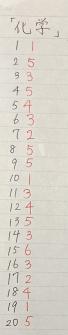 「化学」
1 1
2 5
3 3
4 5
5 4
6 3
7 2
8 5
9 5
10 1
11 3
12 4
13 5
14 3
15 6
16 3
17 2
18 4
19 1
20 5